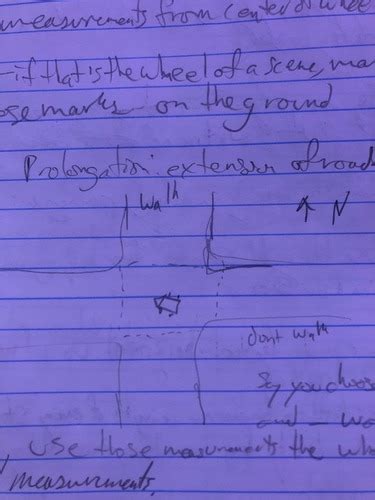 measurements from center of wheel
- if that is the wheel of a scene, ma
ose marks on the ground
Prolongation: extension of road
Walk
N
dont walk
you choose
and - wo
, use those measurements the wh
measurements.